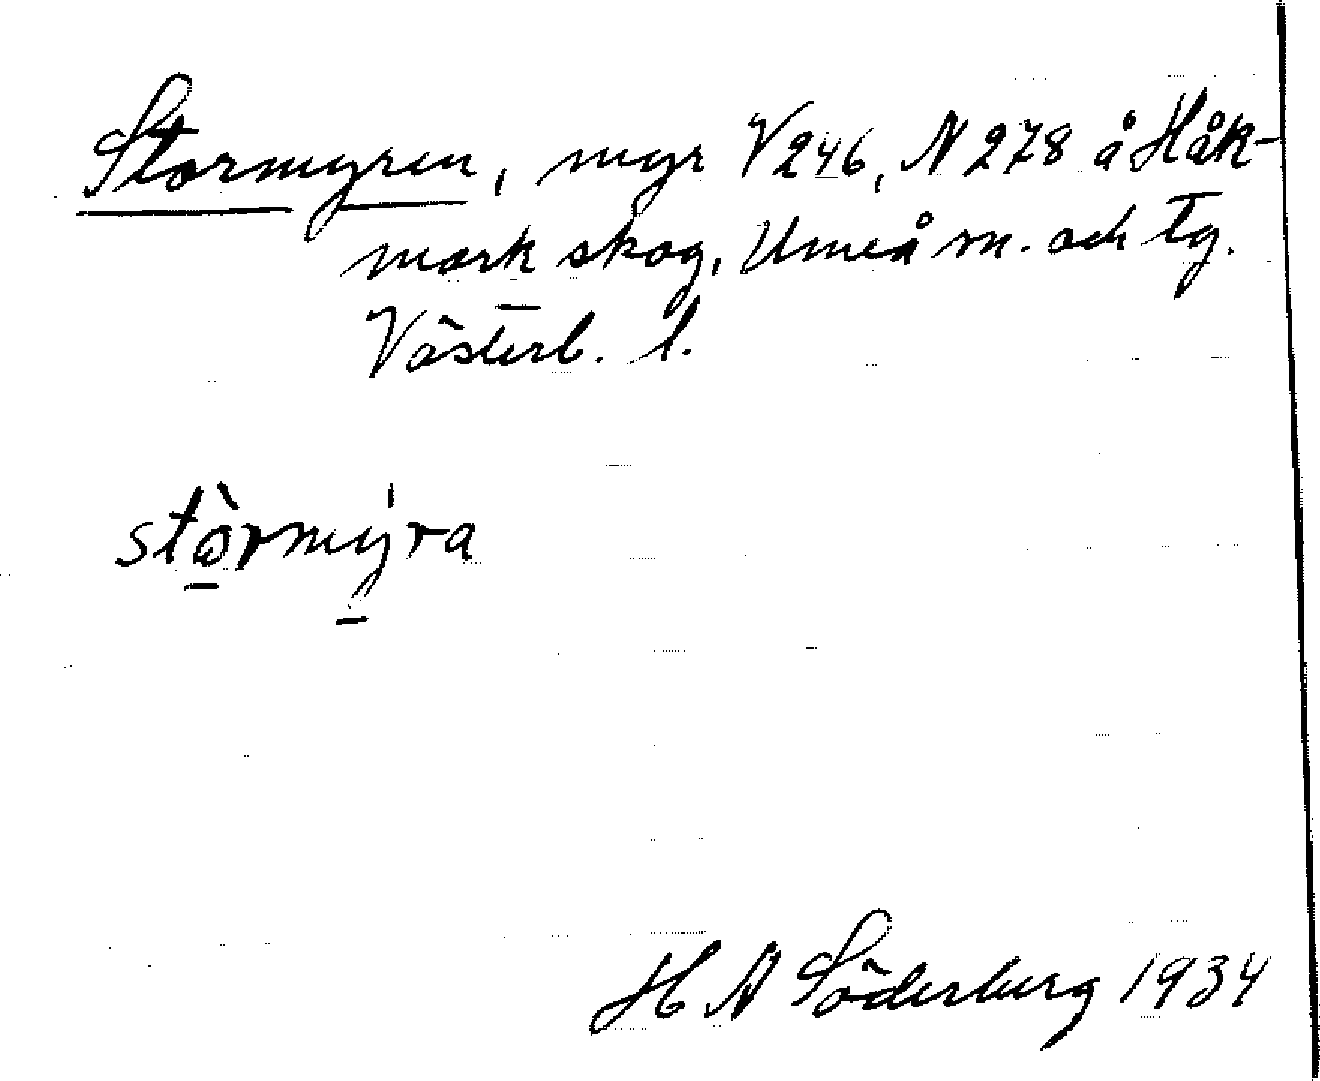 Stormyren, myr V246, N278 å Håk-
mark skog, Umeå sn. och tg.
Västerb. l.
stòrmýra
H N Söderberg 1934